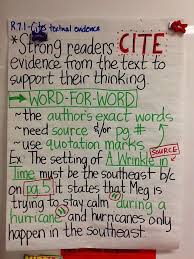 R 7.1 - Cites textual evidence
* Strong readers CITE
evidence from the text to
support their thinking.
→ WORD-FOR-WORD
~ the author's exact words
~ need source &/or pg #
~ use quotation marks
SOURCE
Ex: The setting of A Wrinkle in
Time must be the southeast b/c
on pg. 5 it states that Meg is
trying to stay calm "during a
hurricane" and hurricanes only
happen in the southeast